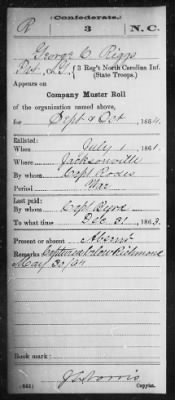 (Confederate.)
R 3 N.C.
George C. Riggs
Pvt, Co. { 3 Reg't North Carolina Inf.
(State Troops.)
Appears on
Company Muster Roll
of the organization named above,
for Sept & Oct, 1864.
Enlisted:
When July 1, 1861.
Where Jacksonville
By whom Capt Rodis
Period War
Last paid:
By whom Capt
To what time Dec 31, 1863.
Present or absent Absent
Remarks Captured below Richmond
May 30/64
Book mark:
(661) Copyist.